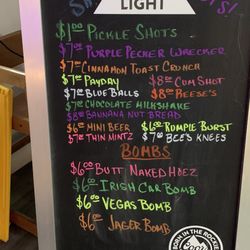 LIGHT
$1.00 PICKLE SHOTS
$7 PURPLE PECKER WRECKER
$7 CINNAMON TOAST CRUNCH
$7 PAYDAY $8 CUM SHOT
$7 BLUE BALLS $8 REESE'S
$7 CHOCOLATE MILKSHAKE
$8 BANNANA NUT BREAD
$6 MINI BEER $6 RUMPLE BURST
$7 THIN MINTZ $7 BEE'S KNEES
BOMBS
$6.00 BUTT NAKED HOEZ
$6.00 IRISH CAR BOMB
$6.00 VEGAS BOMB
$6.00 JAGER BOMB
BORN IN THE ROCKIES